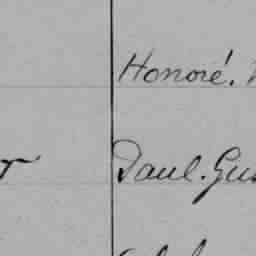 Honoré.
Paul. Gus